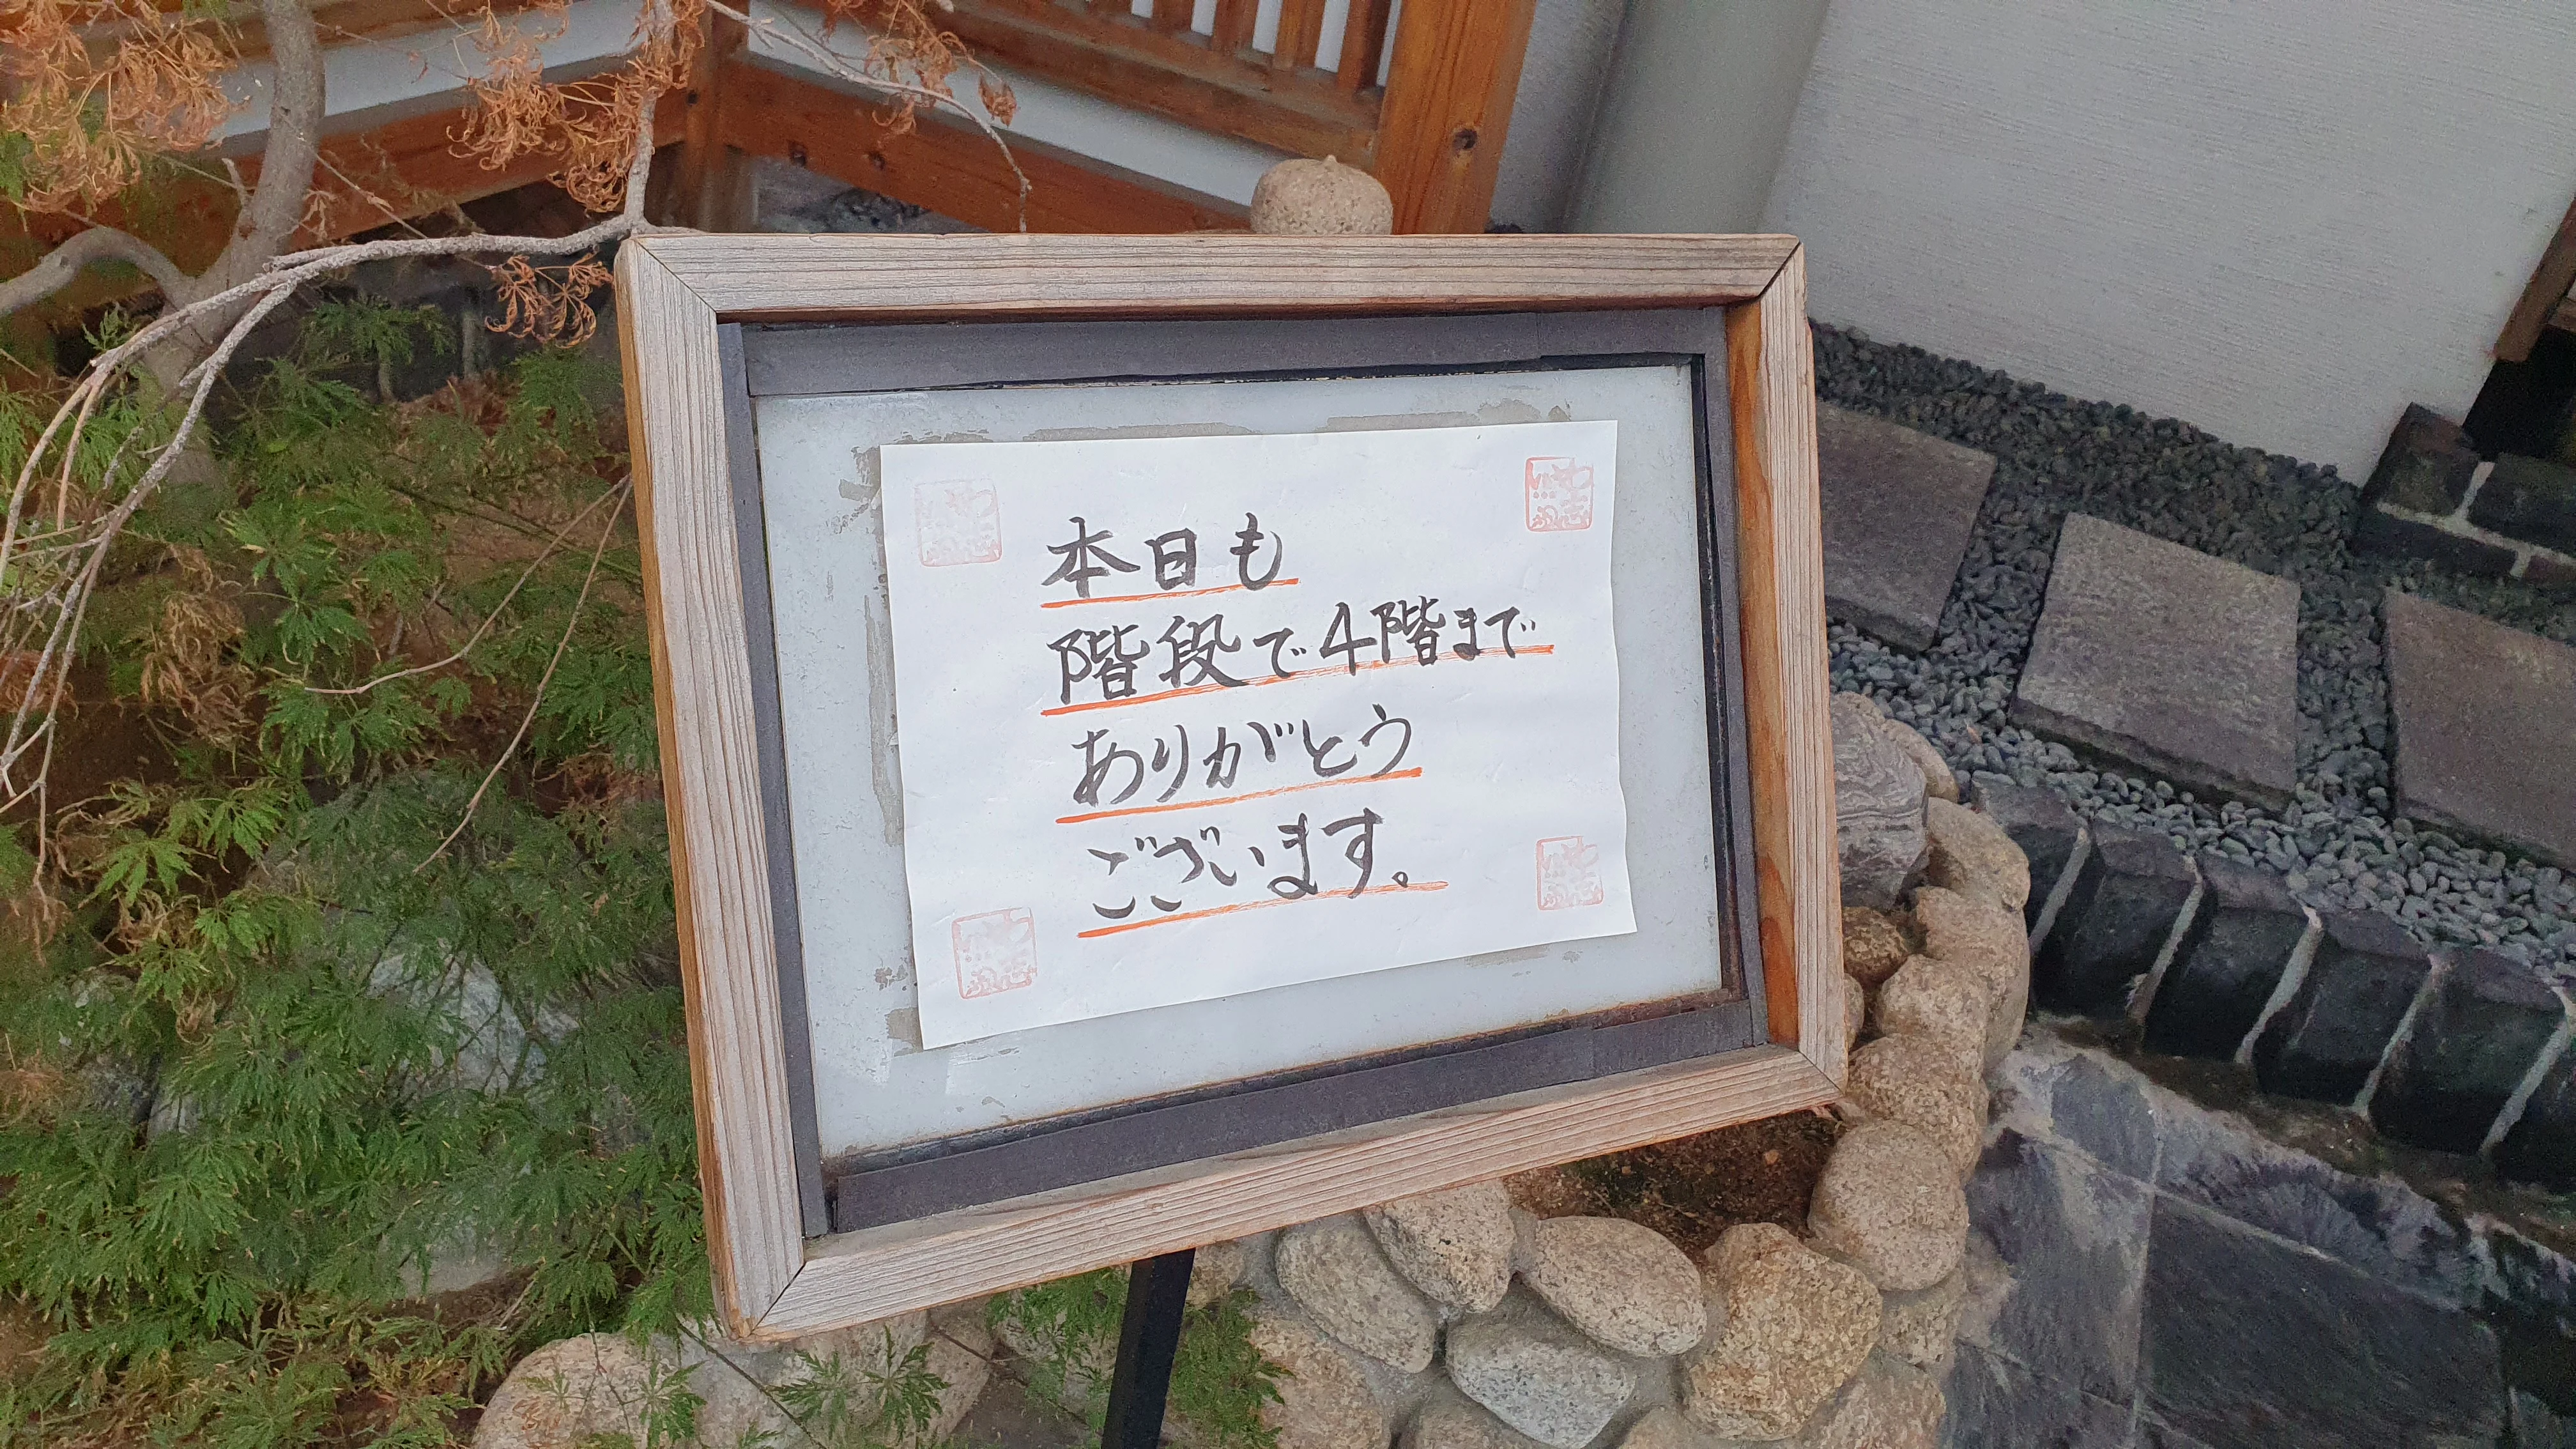 本日も
階段で4階まで
ありがとう
ございます。